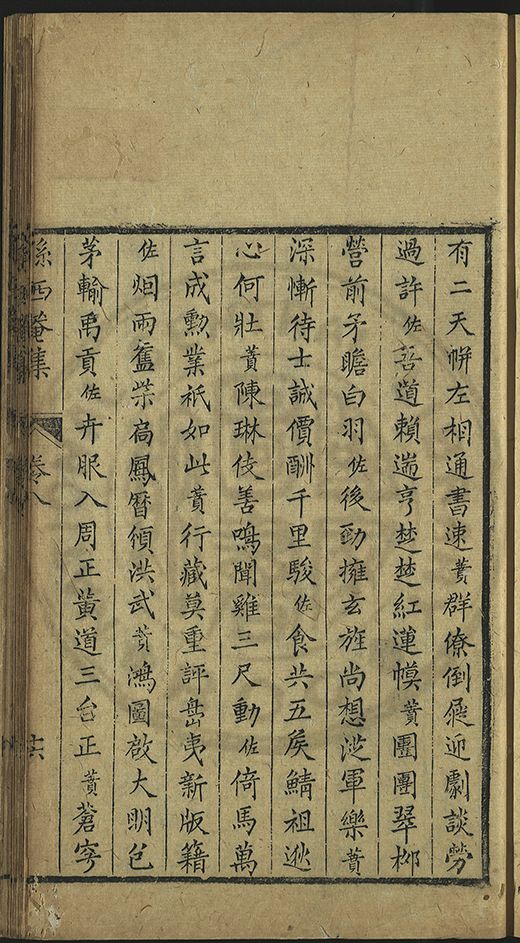 有二天帡左相通書速蕡群僚倒屣迎劇談勞
過許佐吾道賴遄亨楚楚紅蓮幙蕡團團翠栁
營前矛瞻白羽佐後勁擁玄旌尚想從軍樂蕡
深慚待士誠價酬千里駿佐食共五矦鯖祖逖
心何壯蕡陳琳伎善鳴聞雞三尺動佐倚馬萬
言成勲業祇如此蕡行藏莫重評島夷新版籍
佐烟雨舊柴扃鳳曆頒洪武蕡鴻圖啟大明包
茅輸禹貢佐卉服入周正黃道三台正蕡蒼穹
孫西菴集
卷八
十六